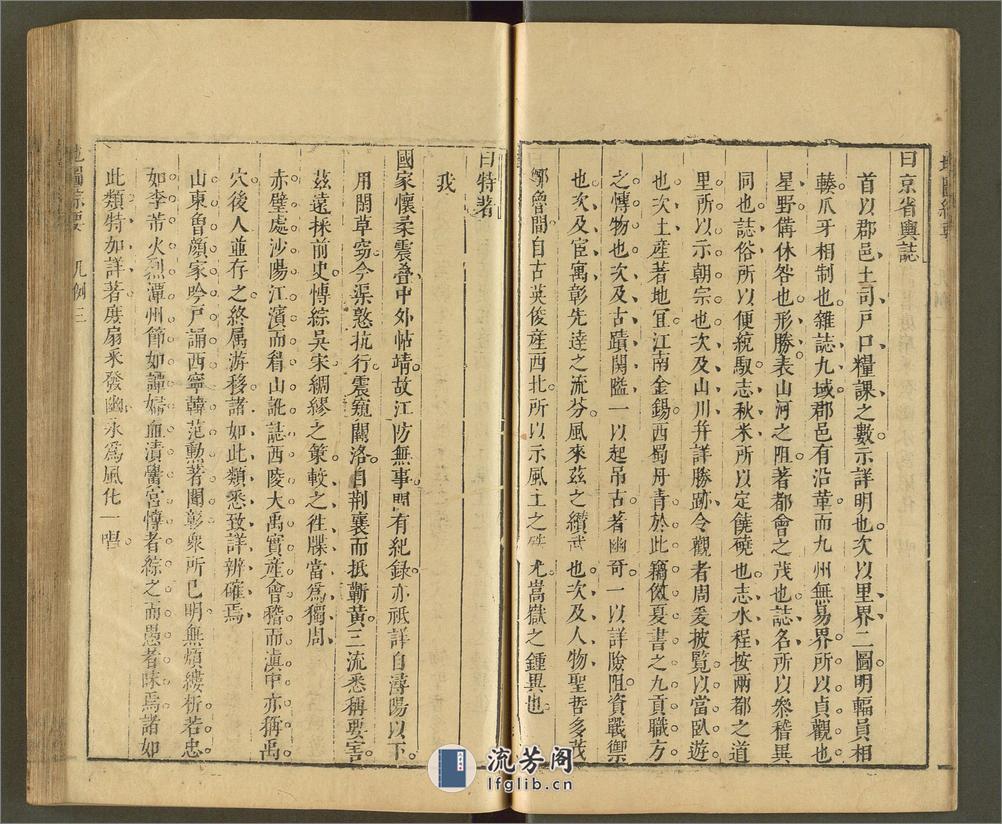 曰京省輿誌
首以郡邑土司戸口糧課之數示詳明也次以里界二圖明輻員相
輳爪牙相制也雜誌九域郡邑有沿革而九州無易界所以貞觀也
星野備休咎也形勝表山河之阻著都會之茂也誌名所以叅稽異
同也誌俗所以便統馭志秋米所以定饒磽也志水程按兩都之道
里所以示朝宗也次及山川幷詳勝跡令觀者周爰披覧以當臥遊
也次土産著地冝江南金錫西蜀丹青於此竊倣夏書之九貢職方
之愽物也次及古蹟関隘一以起吊古著幽竒一以詳險阻資戰禦
也次及宦寓彰先達之流芬風來茲之纘武也次及人物聖哲多茂
鄒魯間自古英俊産西北所以示風土之 尤嵩嶽之鍾異也
曰特者
我
國家懷柔震叠中外帖靖故江防無事間有紀錄亦祇詳自潯陽以下
用閑草竊今渠憝抗行震窺關洛自荆襄而抵蘄黄三流悉稱要害
茲遠採前史愽綜吳宋綢繆之策較之徃牒當爲獨周
赤壁處沙陽江濱而眉山訛誌西陵大禹實産會稽而滇中亦稱禹
穴後人並存之終属游移諸如此類悉致詳辨確焉
山東魯顔家吟戸誦西寧韓范勲著閫彰衆所已明無煩縷析若忠
如李芾火烈潭州節如譚婦血漬黌宮愽者綜之而愚者昧焉諸如
此類特加詳著庻扇釆發幽永爲風化一唱
地圖綜要 凡例 三
流芳阁
lfglib.cn